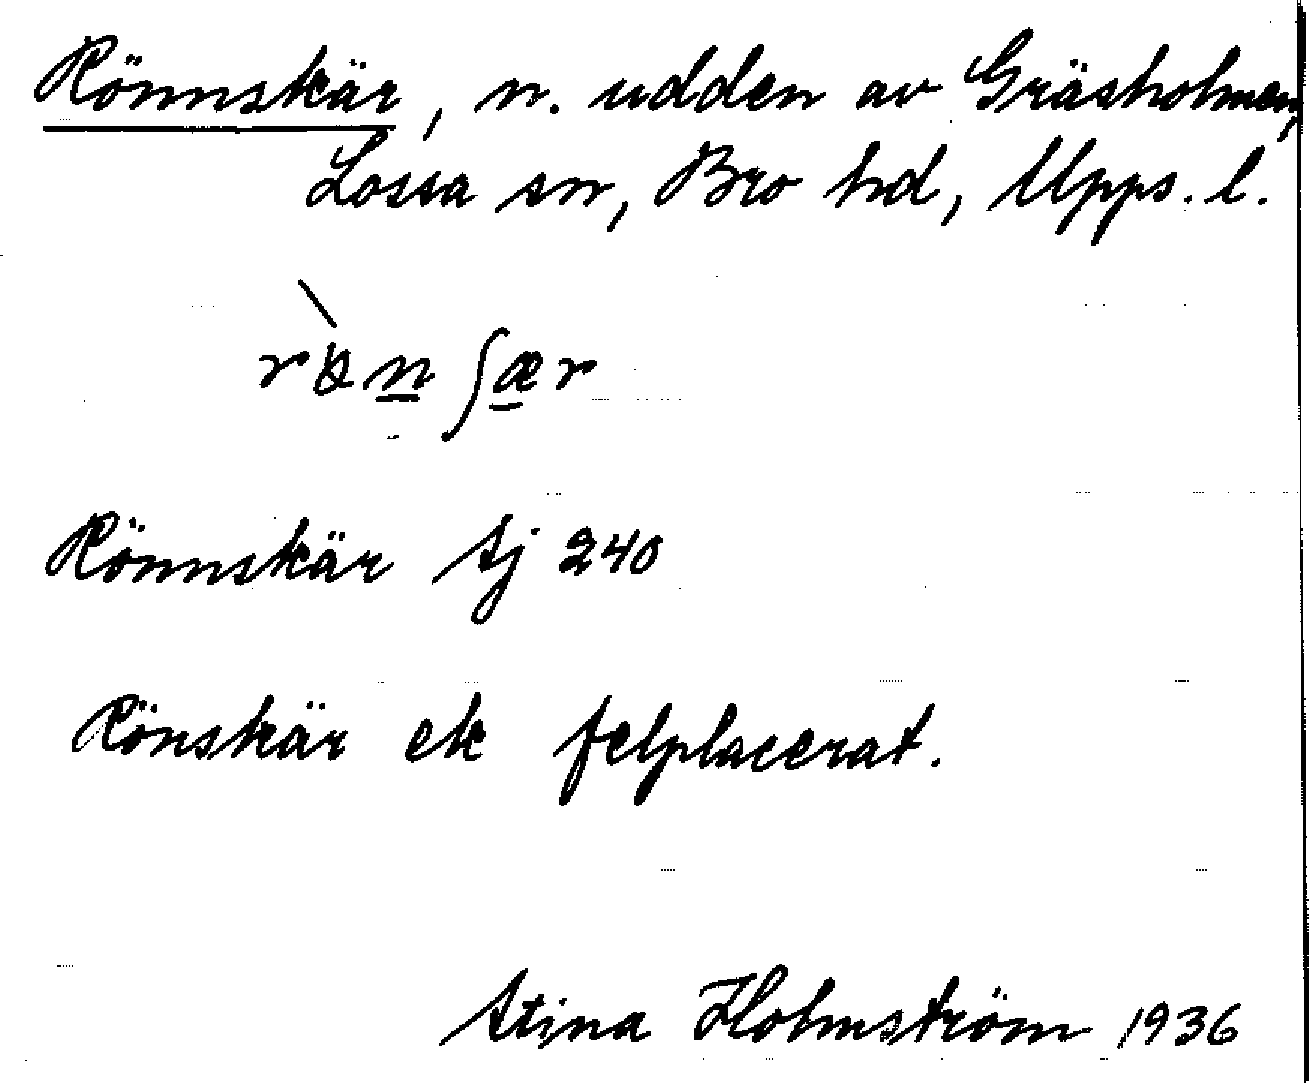 Rönnskär, n. udden av Gräsholmen,
Lossa sn, Bro hd, Upps. l.
Rönnskär Sj 240
Rönskär ek felplacerat.
Stina Holmström 1936